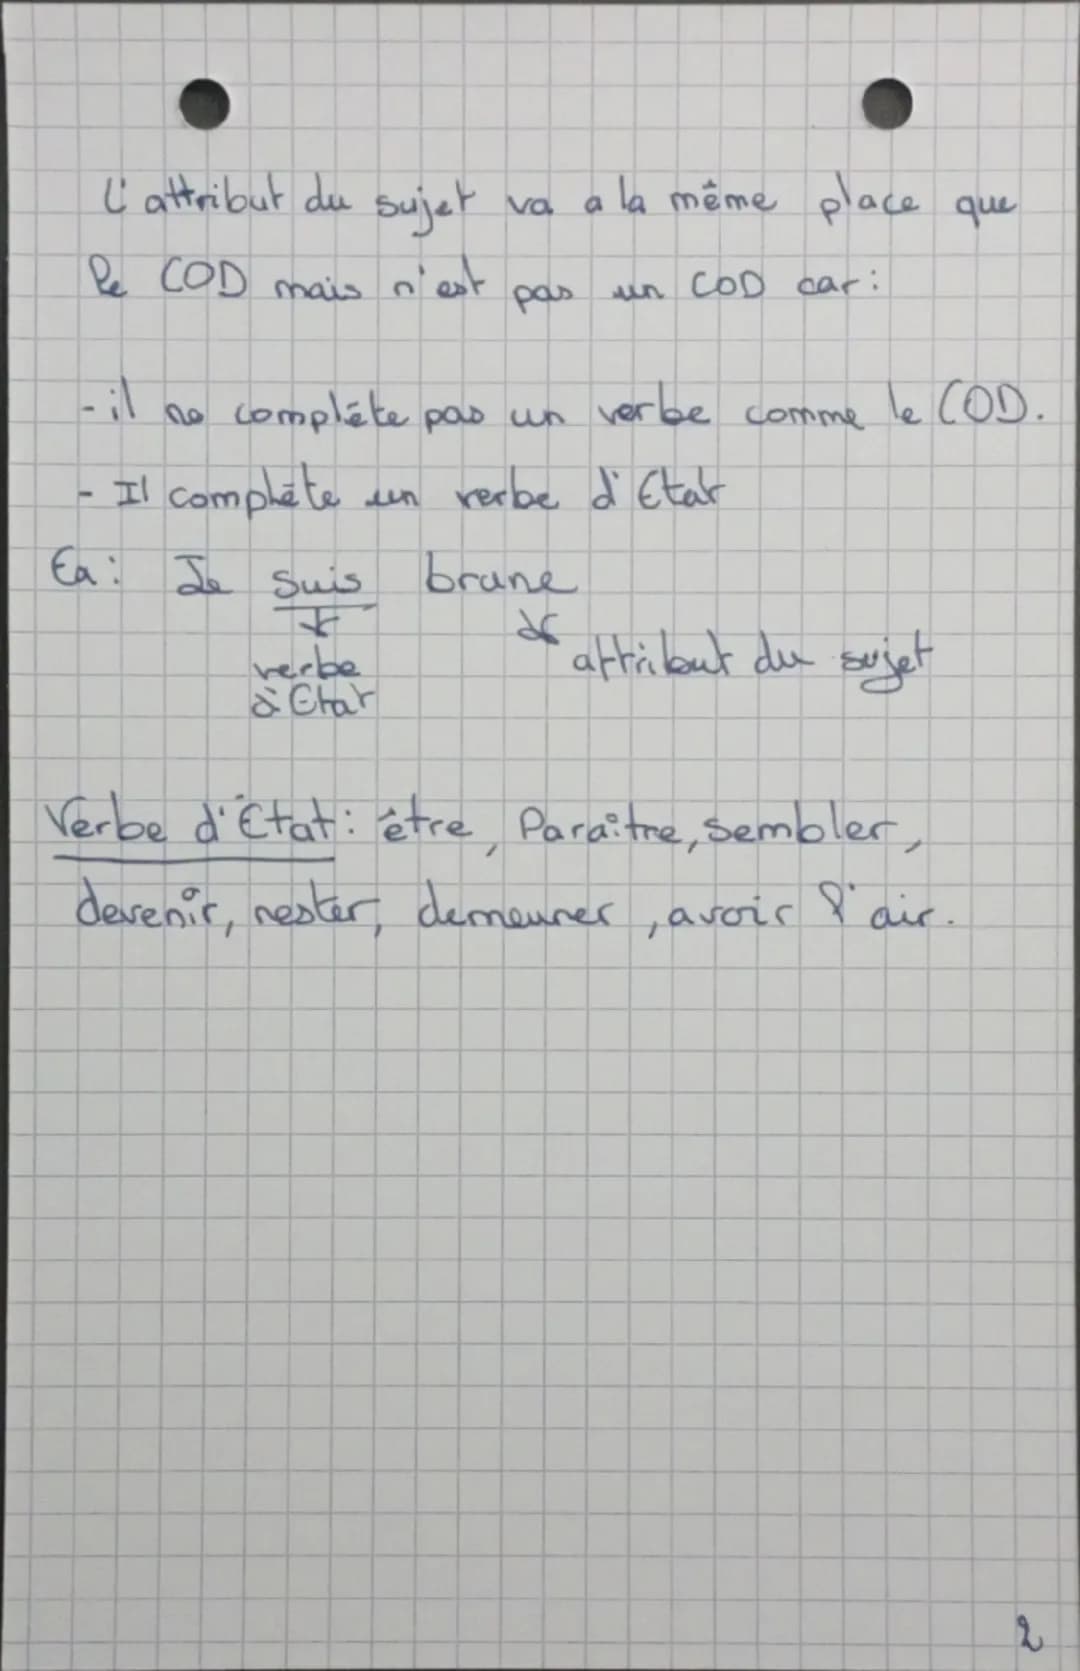 L'attribut du sujet va a la même place que
le COD mais n'est pas un COD car :
- il ne complète pas un verbe comme le COD.
- Il complète un verbe d'Etat
Ex : Je suis brune
attribut du sujet
verbe
d'Etat
Verbe d'Etat : être, Paraître, sembler,
devenir, rester, demeurer, avoir l'air.
2